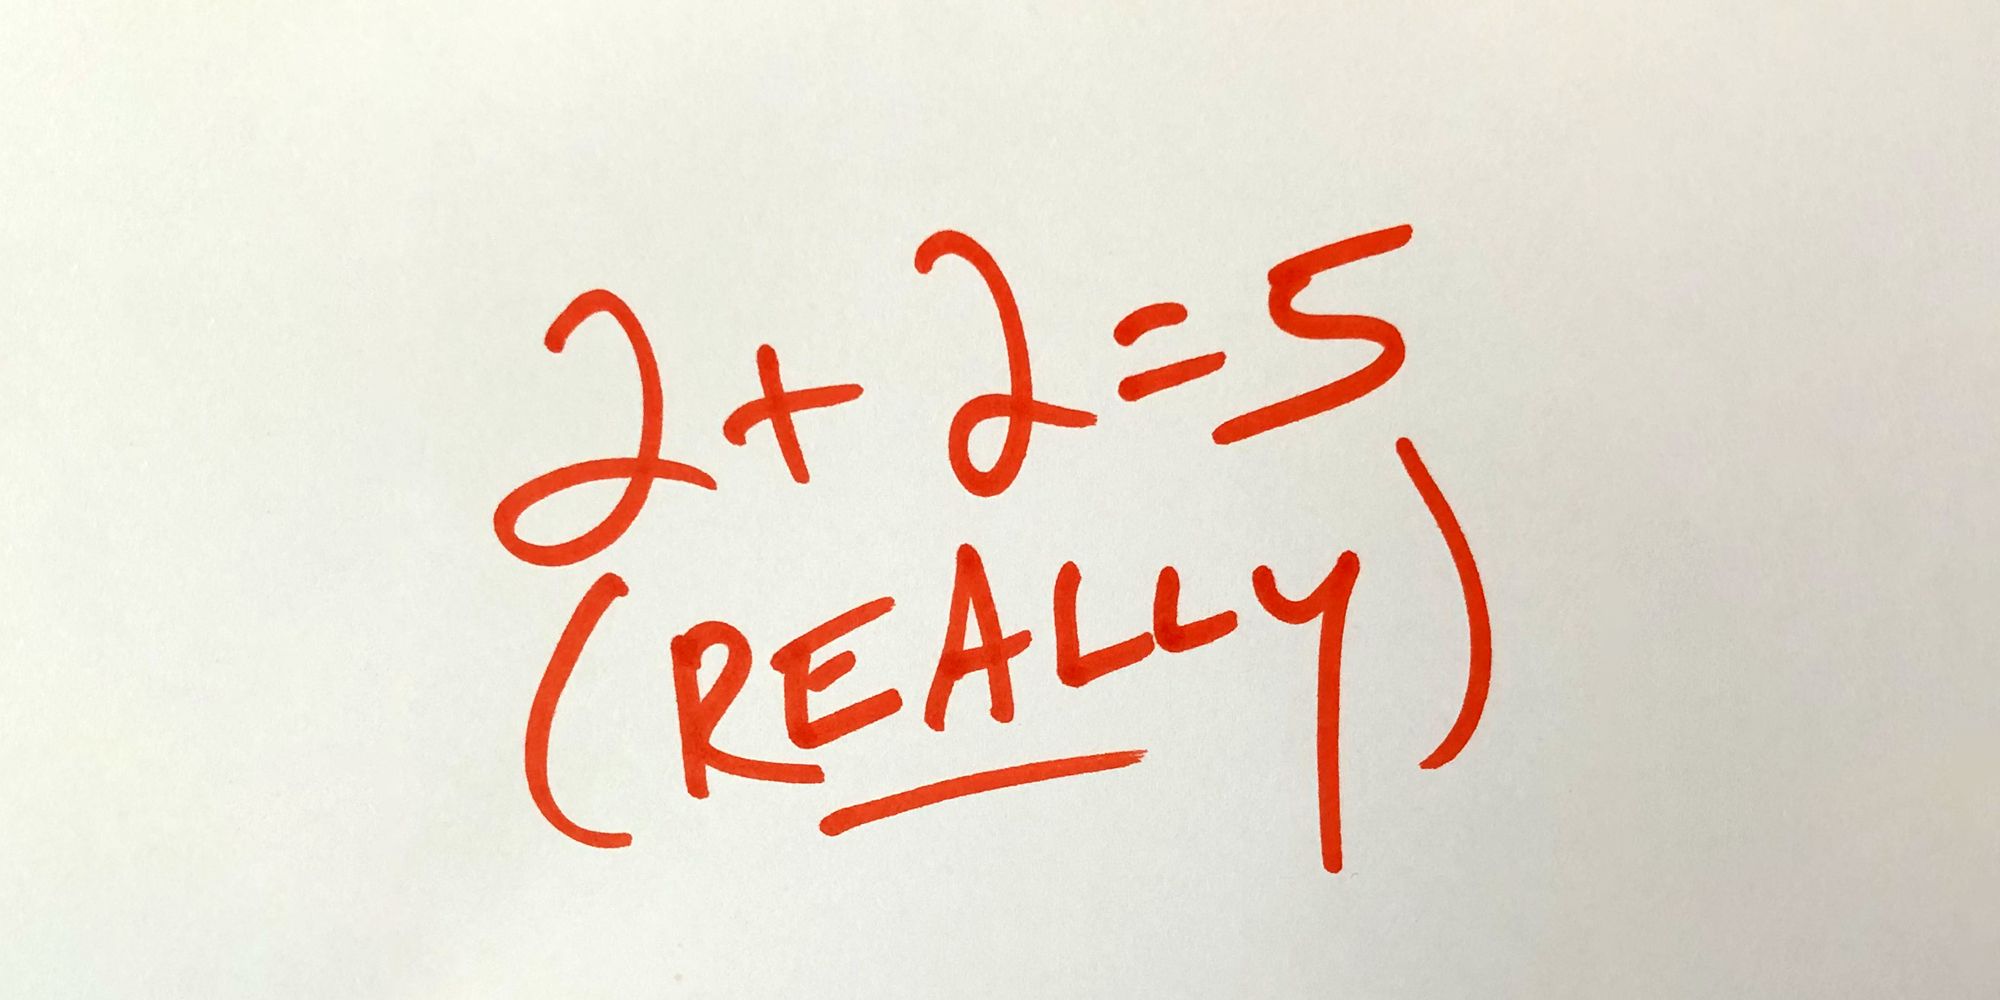 2+2=5
(REALLY)